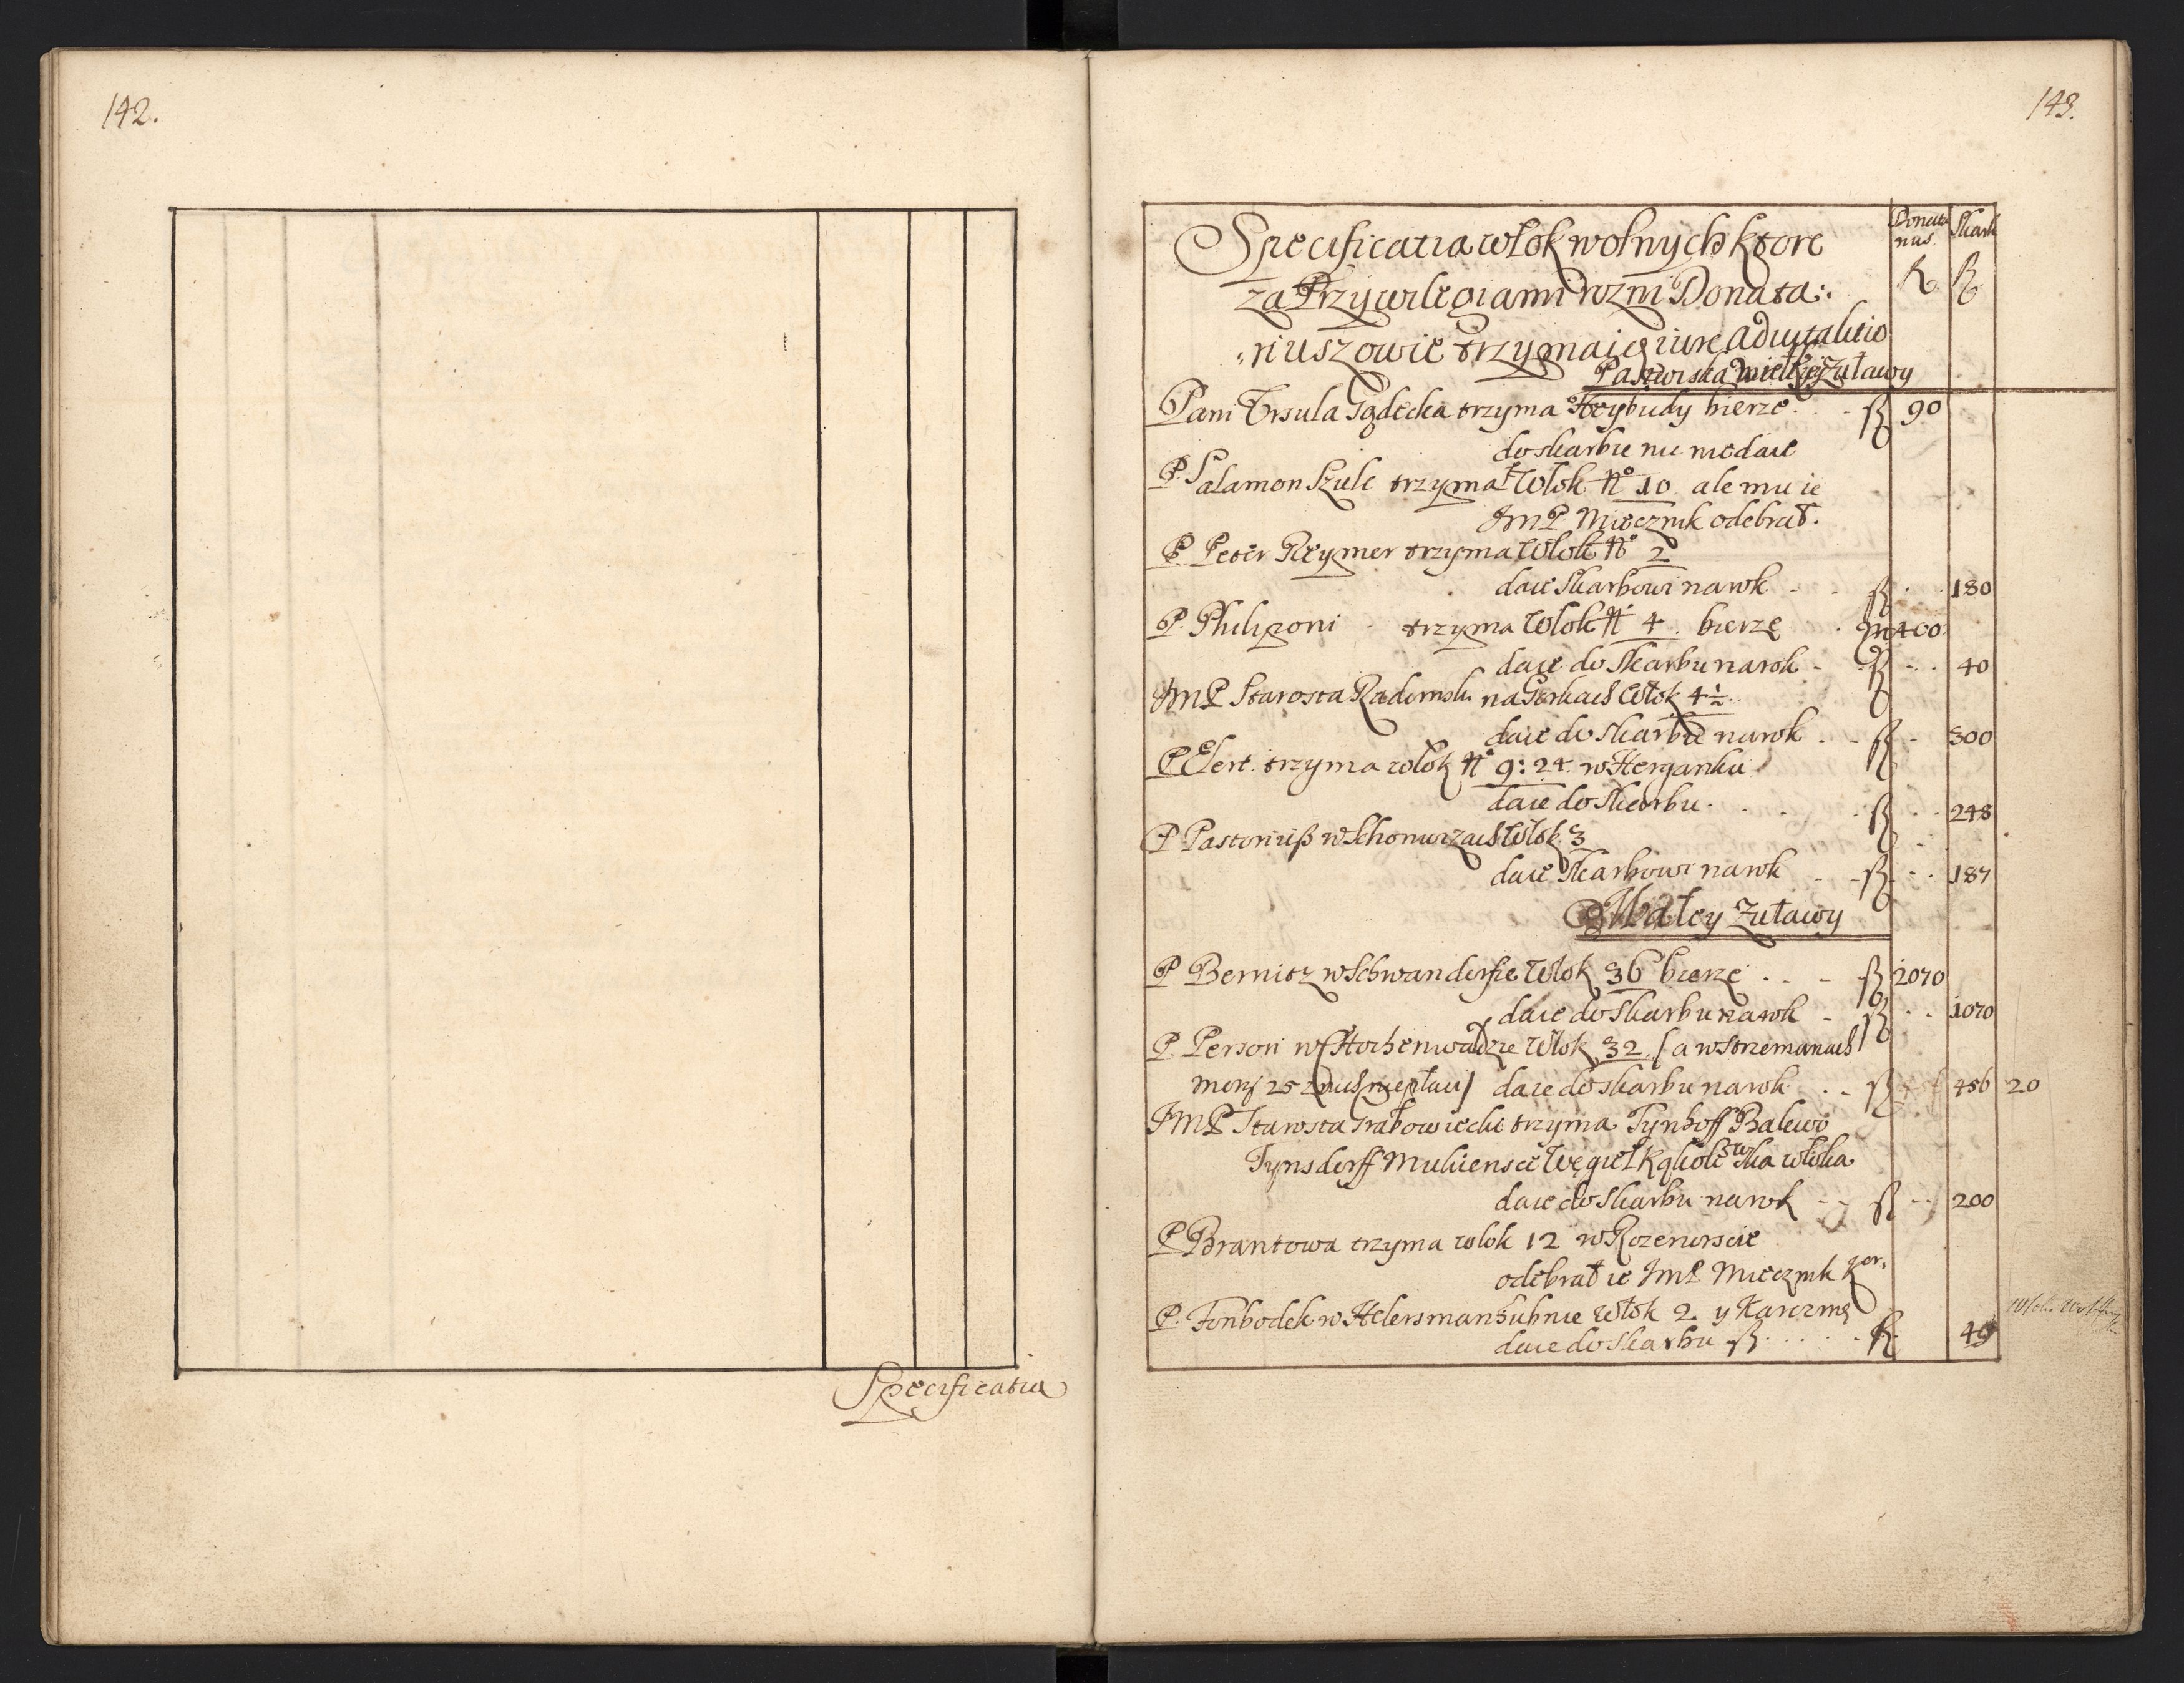 142.
Specificatia
143.
Specificatia włok wolnych ktore
za Przywilegiami rozni Donata:
riuszowie trzymaią iure advitalitio
Donata
nus
Skarb
Pastwiska Wielkiey Zuławy
Pani Ursula Gądecka trzyma Heybudy bierze . . fl 90
do skarbu nic nie daie
P. Salamon Szulc trzymał Włok No 10 ale mu ie
JmP Miecznik odebrał.
P Peter Reymer trzyma Włok No 2
daie Skarbowi na rok - - fl . . 180
P. Philiponi - trzyma Włok No 4. bierze . m 400
daie do Skarbu na rok - fl - . . 40
JmP Starosta Radomski na Gorkach Włok 4½
daie do Skarbu na rok - - fl - 300
P Elert. trzyma włok No 9: 24. w Herganku
daie do Skarbu . . . . fl . . 248
P Pastoriuß w Schonwizach Włok 3
daie Skarbowi na rok - - fl . . 187
Małey Zuławy
P Bernitz w Schwandorfie Włok 36 bierze . . - fl 2070
daie do Skarbu na rok - fl . . 1070
P. Person w Hochenwadzie Włok 32. [a w Strzemanach
morg 25 z nich nie płaci] daie do skarbu na rok . . fl 456 20
JMP Starosta Grabowiecki trzyma Tynhoff Balewo
Tynsdorff Mukiensee Węgieł Kąkolewska włoka
daie do Skarbu na rok - - fl - - 200
P Brantowa trzyma włok 12 w Rozenorscie
odebrał ie JmP Miecznik Kor.
P. Fonbodek w Helersmanhubnie Włok 2. y Karczmę
daie do Skarbu fl . . . . . 49